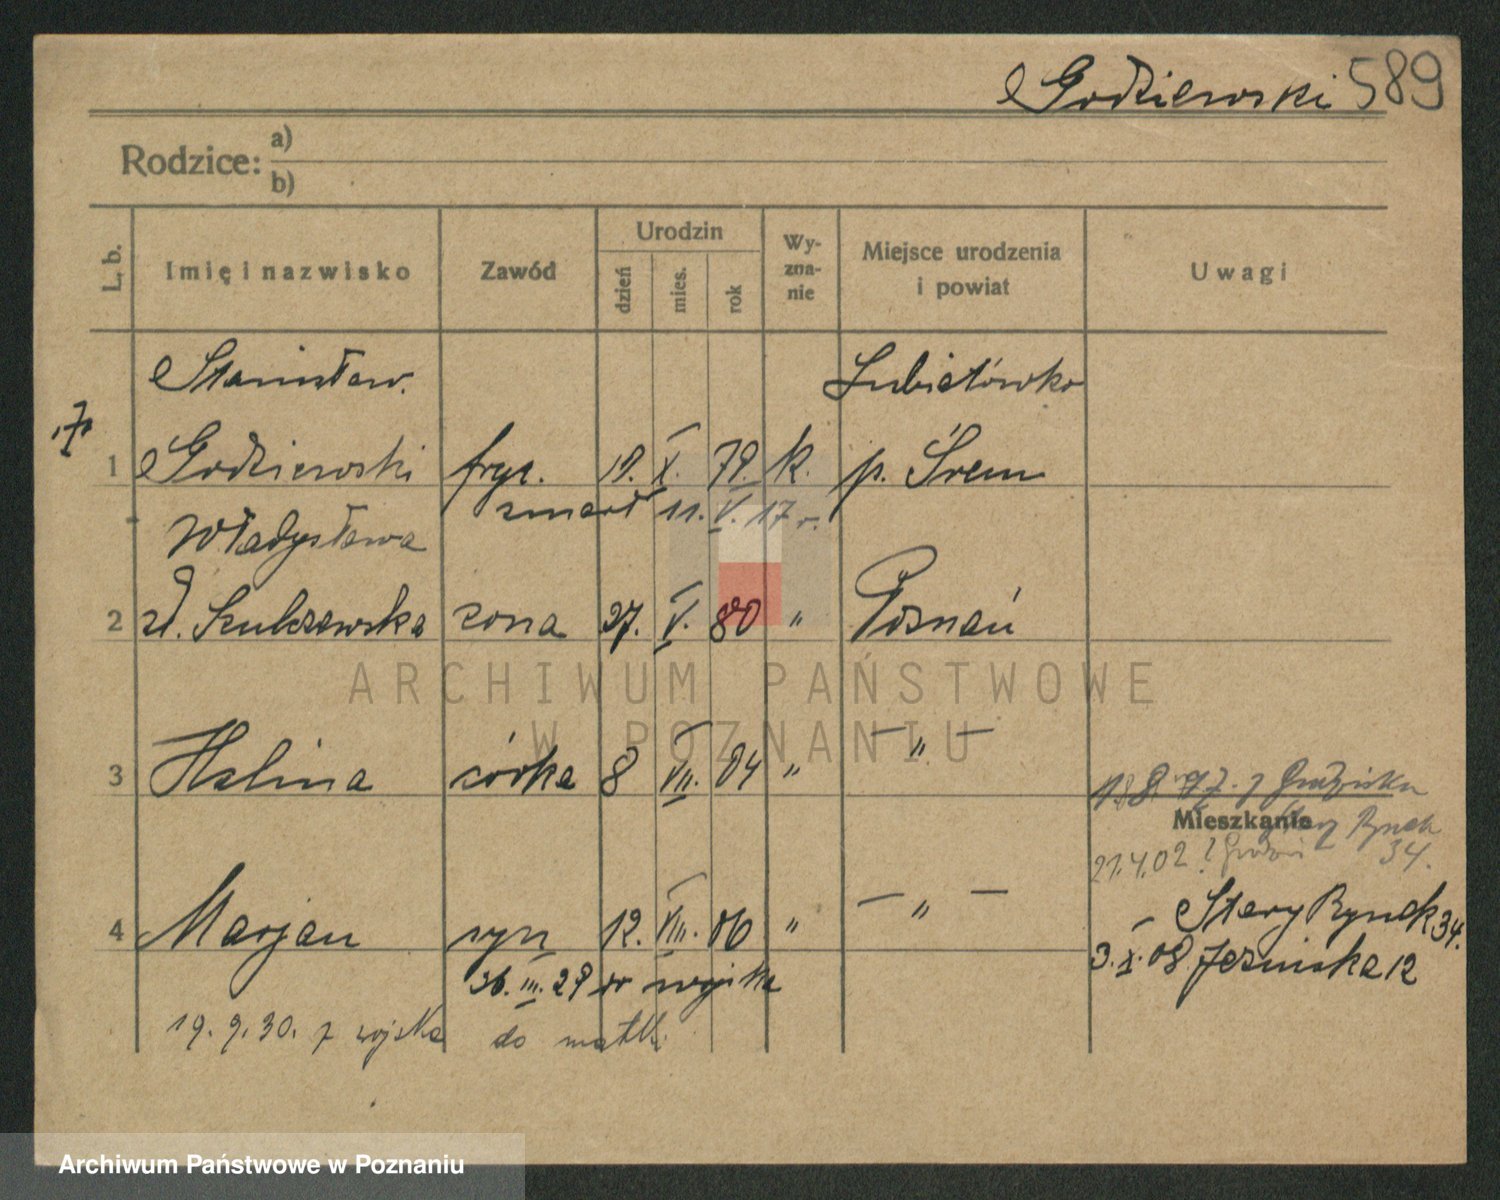 Godziewski 589
Rodzice: a)
b)
L. b.
Imię i nazwisko
Zawód
Urodzin
dzień
mies.
rok
Wy-
zna-
nie
Miejsce urodzenia
i powiat
Uwagi
Stanisław Lubiatówko
1 Godziewski fryz. 19. X. 79. k. p. Śrem
zmarł 11. V. 17 r.
Władysława
2 zd. Szulczewska żona 27. V. 80 " Poznań
ARCHIWUM PAŃSTWOWE
W POZNANIU
3 Halina córka 8 VII. 04 " — " —
Mieszkanie
Stary Rynek
21.4.02 34.
4 Marjan syn 12. VIII. 06 " — " —
Stary Rynek 34.
26. III. 29 do wojska
3. X. 08 Jezuicka 12
19. 9. 30. z wojska do matki
Archiwum Państwowe w Poznaniu